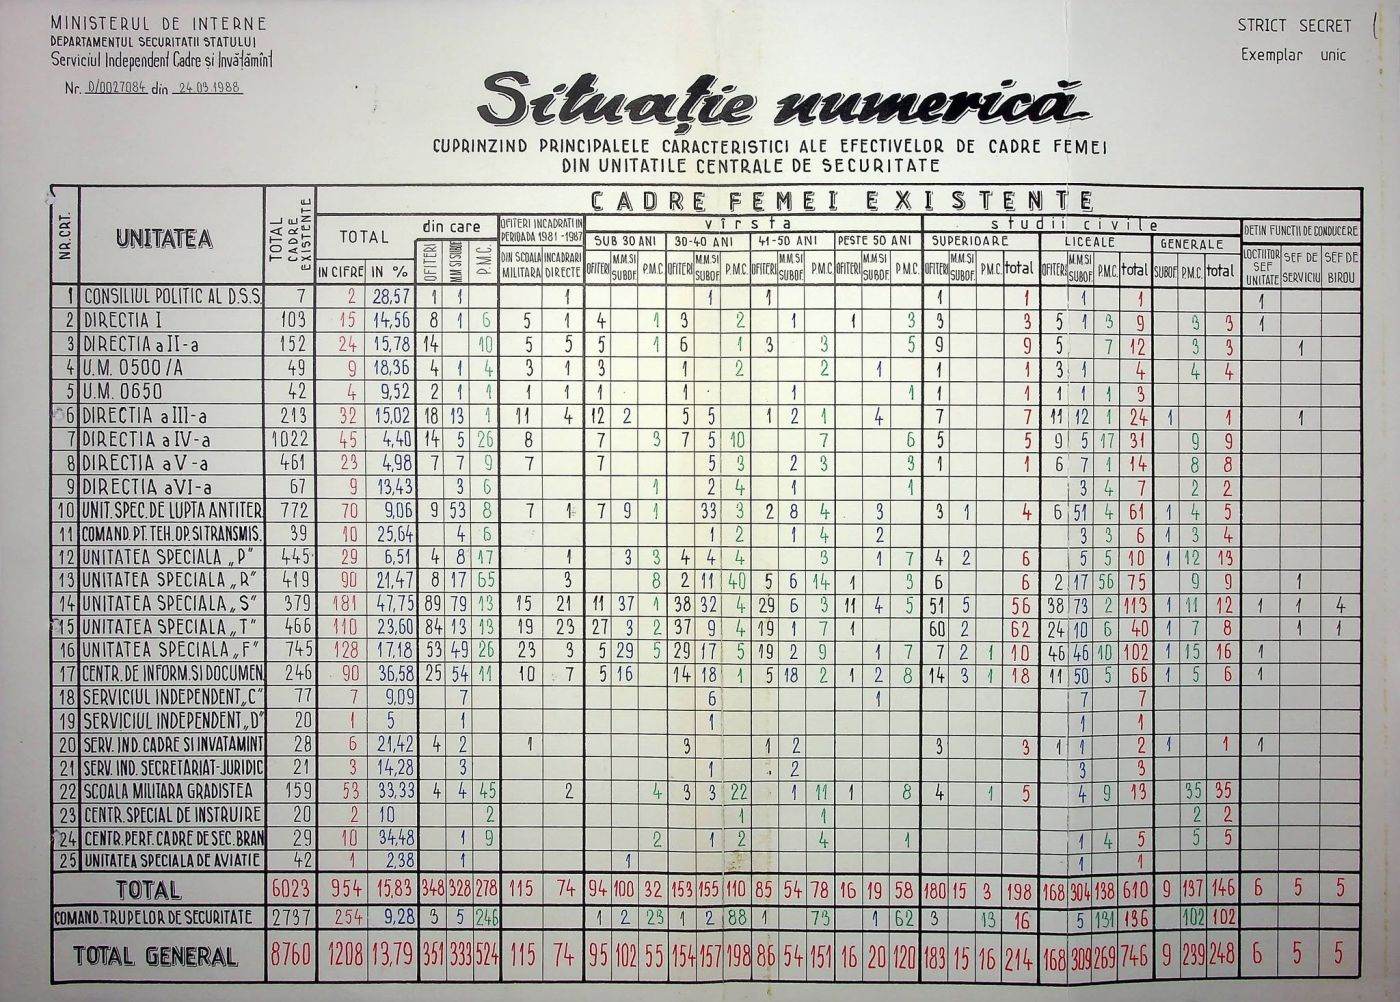 MINISTERUL DE INTERNE
DEPARTAMENTUL SECURITATII STATULUI
Serviciul Independent Cadre și Învățămînt
Nr. D/0027084 din 24.03.1988
STRICT SECRET
Exemplar unic
Situație numerică
CUPRINZIND PRINCIPALELE CARACTERISTICI ALE EFECTIVELOR DE CADRE FEMEI
DIN UNITATILE CENTRALE DE SECURITATE
NR. CRT. UNITATEA TOTAL CADRE EXISTENTE CADRE FEMEI EXISTENTE
TOTAL din care OFITERI INCADRATI IN PERIOADA 1981-1987 vîrsta studii civile DETIN FUNCTII DE CONDUCERE
SUB 30 ANI 30-40 ANI 41-50 ANI PESTE 50 ANI SUPERIOARE LICEALE GENERALE
IN CIFRE IN % OFITERI M.M SI SUBOF. P.M.C. DIN SCOALA MILITARA INCADRARI DIRECTE OFITERI M.M SI SUBOF. P.M.C. OFITERI M.M SI SUBOF. P.M.C. OFITERI M.M SI SUBOF. P.M.C. OFITERI M.M SI SUBOF. P.M.C. OFITERI M.M SI SUBOF. P.M.C. total OFITERI M.M SI SUBOF. P.M.C. total SUBOF. P.M.C. total LOCTIITOR SEF UNITATE SEF DE SERVICIU SEF DE BIROU
1 CONSILIUL POLITIC AL D.S.S. 7 2 28,57 1 1 1 1 1 1 1 1 1 1
2 DIRECTIA I 103 15 14,56 8 1 6 5 1 4 1 3 2 1 1 3 3 3 5 1 3 9 3 3 1
3 DIRECTIA a II-a 152 24 15,78 14 10 5 5 5 1 6 1 3 3 5 9 9 5 7 12 3 3 1
4 U.M. 0500/A 49 9 18,36 4 1 4 3 1 3 1 2 2 1 1 1 3 1 4 4 4
5 U.M. 0650 42 4 9,52 2 1 1 1 1 1 1 1 1 1 1 1 1 1 3
6 DIRECTIA a III-a 213 32 15,02 18 13 1 11 4 12 2 5 5 1 2 1 4 7 7 11 12 1 24 1 1 1
7 DIRECTIA a IV-a 1022 45 4,40 14 5 26 8 7 3 7 5 10 7 6 5 5 9 5 17 31 9 9
8 DIRECTIA a V-a 461 23 4,98 7 7 9 7 7 5 3 2 3 3 1 1 6 7 1 14 8 8
9 DIRECTIA a VI-a 67 9 13,43 3 6 1 2 4 1 1 3 4 7 2 2
10 UNIT. SPEC. DE LUPTA ANTITER. 772 70 9,06 9 53 8 7 1 7 9 1 33 3 2 8 4 3 3 1 4 6 51 4 61 1 4 5
11 COMAND. PT. TEH. OP. SI TRANSMIS. 39 10 25,64 4 6 1 2 1 4 2 3 3 6 1 3 4
12 UNITATEA SPECIALA „P" 445 29 6,51 4 8 17 1 3 3 4 4 4 3 1 7 4 2 6 5 5 10 1 12 13
13 UNITATEA SPECIALA „R" 419 90 21,47 8 17 65 3 8 2 11 40 5 6 14 1 3 6 6 2 17 56 75 9 9 1
14 UNITATEA SPECIALA „S" 379 181 47,75 89 79 13 15 21 11 37 1 38 32 4 29 6 3 11 4 5 51 5 56 38 73 2 113 1 11 12 1 1 4
15 UNITATEA SPECIALA „T" 466 110 23,60 84 13 13 19 23 27 3 2 37 9 4 19 1 7 1 60 2 62 24 10 6 40 1 7 8 1 1
16 UNITATEA SPECIALA „F" 745 128 17,18 53 49 26 23 3 5 29 5 29 17 5 19 2 9 1 7 7 2 1 10 46 46 10 102 1 15 16 1
17 CENTR. DE INFORM. SI DOCUMEN. 246 90 36,58 25 54 11 10 7 5 16 14 18 1 5 18 2 1 2 8 14 3 1 18 11 50 5 66 1 5 6 1
18 SERVICIUL INDEPENDENT „C" 77 7 9,09 7 6 1 7 7
19 SERVICIUL INDEPENDENT „D" 20 1 5 1 1 1 1
20 SERV. IND. CADRE SI INVATAMINT 28 6 21,42 4 2 1 3 1 2 3 3 1 1 2 1 1 1
21 SERV. IND. SECRETARIAT-JURIDIC 21 3 14,28 3 1 2 3 3
22 SCOALA MILITARA GRADISTEA 159 53 33,33 4 4 45 2 4 3 3 22 1 11 1 8 4 1 5 4 9 13 35 35
23 CENTR. SPECIAL DE INSTRUIRE 20 2 10 2 1 1 2 2
24 CENTR. PERF. CADRE DE SEC. BRAN 29 10 34,48 1 9 2 1 2 4 1 1 4 5 5 5
25 UNITATEA SPECIALA DE AVIATIE 42 1 2,38 1 1 1 1
TOTAL 6023 954 15,83 348 328 278 115 74 94 100 32 153 155 110 85 54 78 16 19 58 180 15 3 198 168 304 138 610 9 137 146 6 5 5
COMAND. TRUPELOR DE SECURITATE 2737 254 9,28 3 5 246 1 2 23 1 2 88 1 73 1 62 3 13 16 5 131 136 102 102
TOTAL GENERAL 8760 1208 13,79 351 333 524 115 74 95 102 55 154 157 198 86 54 151 16 20 120 183 15 16 214 168 309 269 746 9 239 248 6 5 5